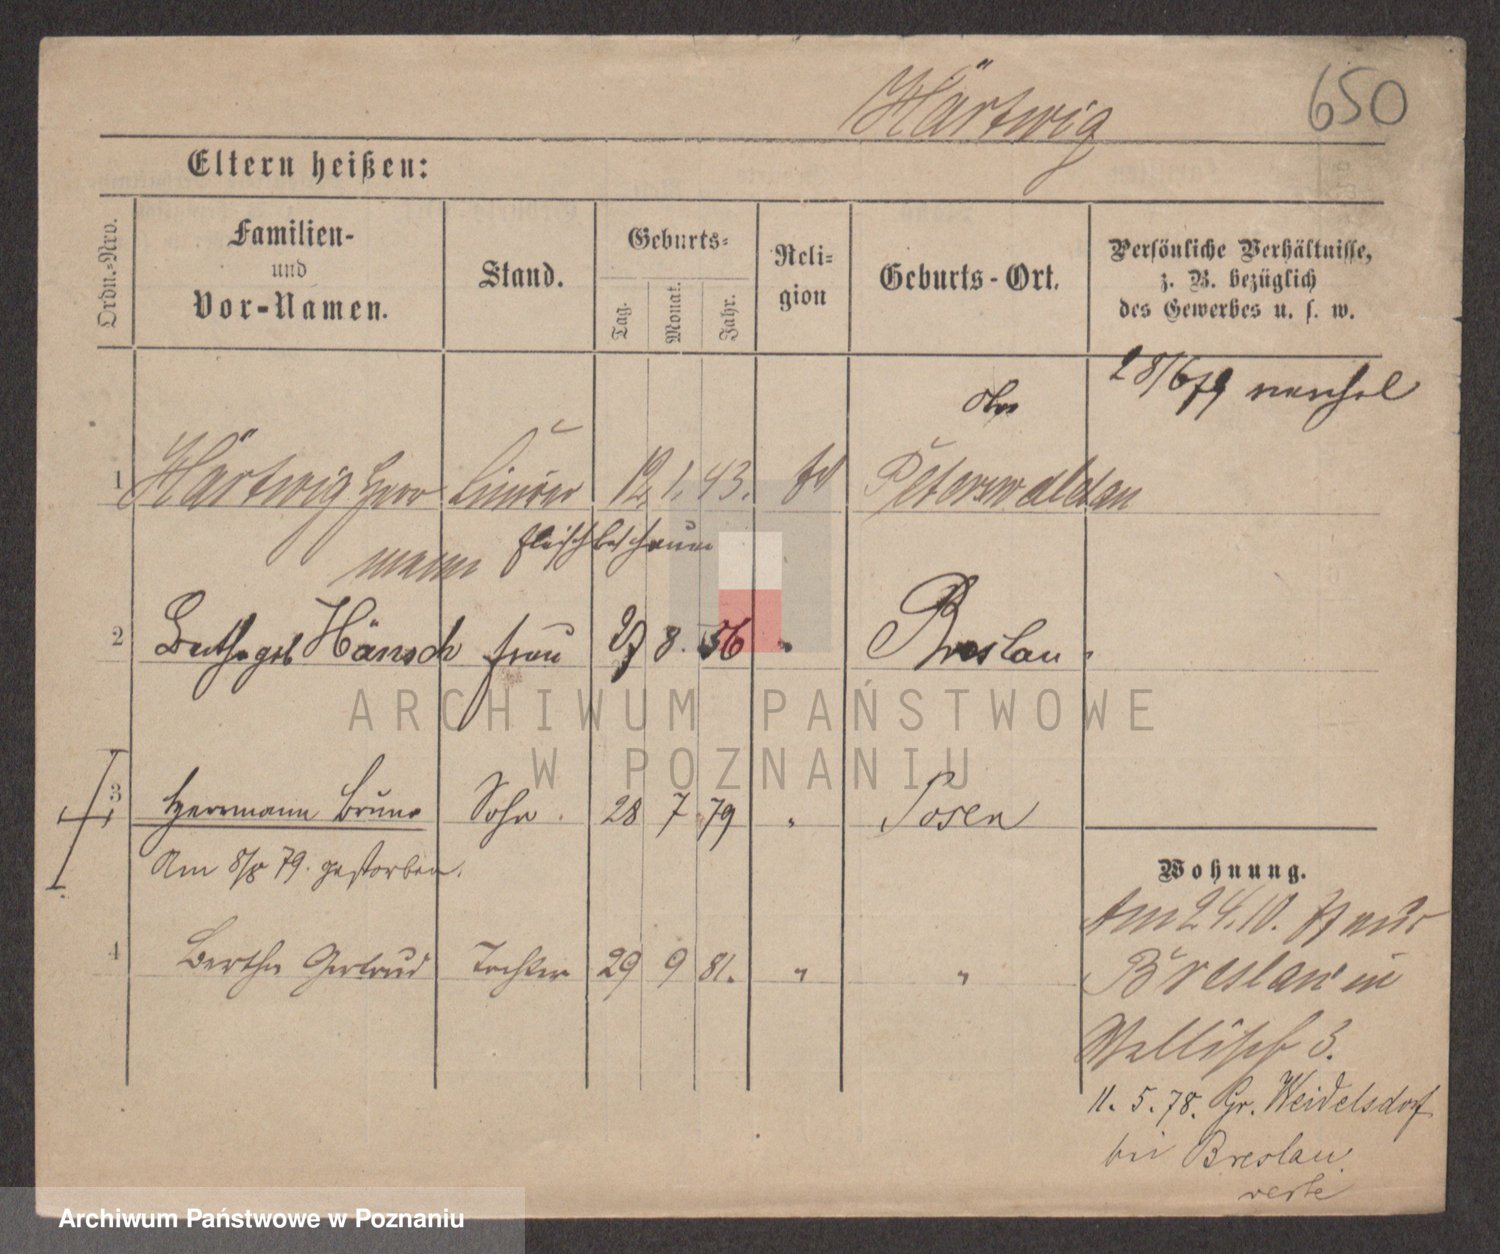 Härtwig 650
Eltern heißen:
Ordn.-Nro.
Familien-
und
Vor-Namen.
Stand.
Geburts-
Tag.
Monat.
Jahr.
Reli-
gion
Geburts-Ort.
Persönliche Verhältnisse,
z. B. bezüglich
des Gewerbes u. s. w.
28/6 79
Ober
1 Härtwig Herr 12. 1. 43. Peterswaldau
mann Fleischbeschauer
2 Bertha geb Hänsch Frau 27 8. 56 " Breslau.
3 Herrmann Bruno Sohn. 28 7 79 " Posen
Am 8/8 79. gestorben.
Wohnung.
Am 24. 10. 77 aus
4 Bertha Gertrud Tochter 29 9 81. " "
Breslau in
3.
11. 5. 78. Gr. Weidelsdorf
bei Breslau.
ARCHIWUM PAŃSTWOWE
W POZNANIU
Archiwum Państwowe w Poznaniu